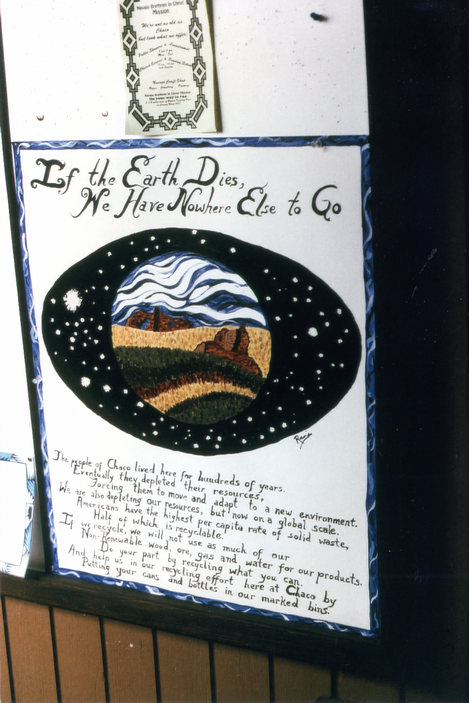 Navajo Brethren in Christ
Mission
We're not as old as
Chaco
but look what we offer:
Navajo Craft Shop
If the Earth Dies,
We Have Nowhere Else to Go
The people of Chaco lived here for hundreds of years.
Eventually they depleted their resources,
Forcing them to move and adapt to a new environment.
We are also depleting our resources, but now on a global scale.
Americans have the highest per capita rate of solid waste,
Half of which is recyclable.
If we recycle, we will not use as much of our
Non-renewable wood, ore, gas and water for our products.
Do your part by recycling what you can.
And help us in our recycling effort here at Chaco by
Putting your cans and bottles in our marked bins.